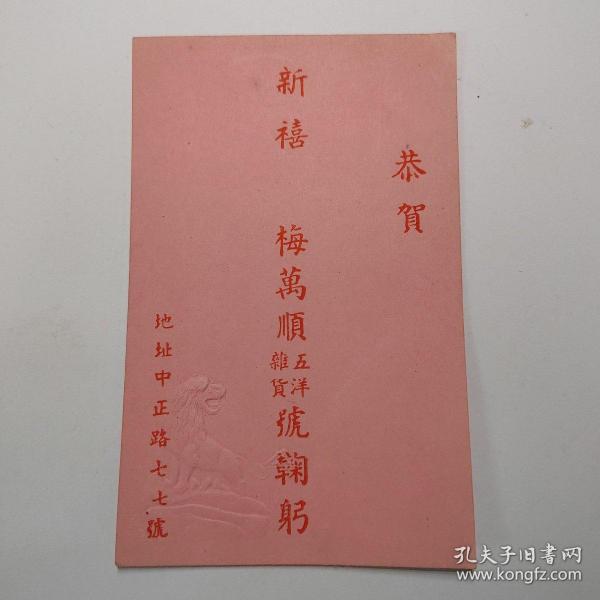 恭賀
新禧 梅萬順五洋雜貨號鞠躬
地址中正路七七號
孔夫子旧書网
www.kongfz.com